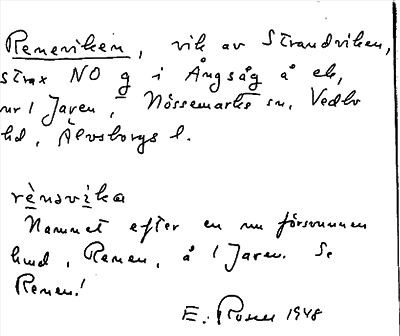 Reneviken, vik av Strandviken,
strax NO g i Ångsåg å ek,
nr 1 Jaren, Nössemarks sn, Vedbo
hd, Älvsborgs l.
rènəvìka
Namnet efter en nu försvunnen
hmd, Renen, å 1 Jaren. Se
Renen!
E. Rosen 1948